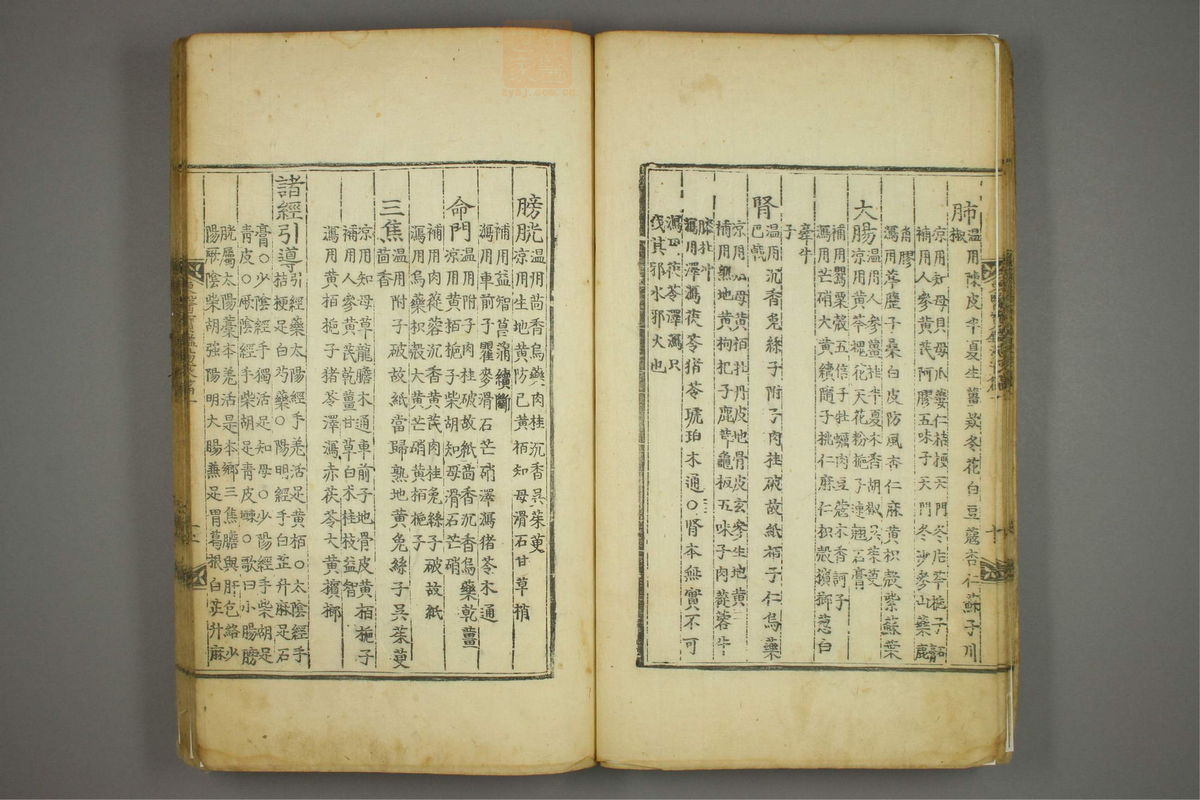 肺 温用陳皮半夏生薑款冬花白豆蔻杏仁蘇子川
椒
凉用知母貝母瓜蔞仁桔梗天門冬片芩梔子石膏
補用人參黃芪阿膠五味子天門冬沙參山藥鹿
角膠
瀉用葶藶子桑白皮防風杏仁麻黃枳殼紫蘇葉
大腸 温用人參薑桂半夏木香胡椒吳茱萸
凉用黃芩槐花天花粉梔子連翹石膏
補用罌粟殼五倍子牡蠣肉豆蔻木香訶子
瀉用芒硝大黃續隨子桃仁麻仁枳殼檳榔葱白
牽牛
子
腎 温用沉香兔絲子附子肉桂破故紙栢子仁烏藥
巴戟
凉用知母黃栢牡丹皮地骨皮玄參生地黃
補用熟地黃枸杞子鹿茸龜板五味子肉蓯蓉牛
膝杜冲
瀉用澤瀉茯苓猪苓琥珀木通○腎本無實不可
瀉四茯苓澤瀉只
伐其邪水邪火也
膀胱 温用茴香烏藥肉桂沉香吳茱萸
凉用生地黃防己黃栢知母滑石甘草梢
補用益智菖蒲續斷
瀉用車前子瞿麥滑石芒硝澤瀉猪苓木通
命門 温用附子肉桂破故紙茴香沉香烏藥乾薑
凉用黃栢梔子柴胡知母滑石芒硝
補用肉蓯蓉沉香黃芪肉桂兔絲子破故紙
瀉用烏藥枳殼大黃芒硝黃栢梔子
三焦 温用附子破故紙當歸熟地黃兔絲子吳茱萸
茴香
凉用知母草龍膽木通車前子地骨皮黃栢梔子
補用人參黃芪乾薑甘草白朮桂枝益智
瀉用黃栢梔子猪苓澤瀉赤茯苓大黃檳榔
諸經引導 引經藥太陽經手羌活足黃栢○太陰經手
桔梗足白芍藥○陽明經手白芷升麻足石
膏○少陰經手獨活足知母○少陽經手柴胡足
靑皮○厥陰經手柴胡足靑皮○歌曰小腸膀
胱屬太陽藁本羌活是本鄉三焦膽與肝包絡少
陽厥陰柴胡强陽明大腸兼足胃葛根白芷升麻